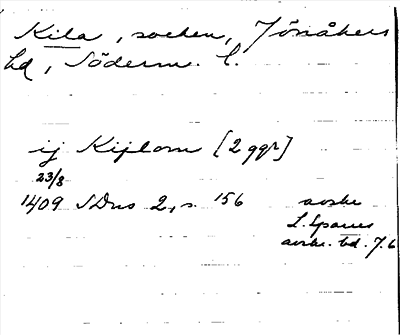 Kila, socken, Jönåkers
hd, Söderm. l.
ij Kijlom [2 ggr]
23/8
1409 SDns 2, s. 156 avskr
L. Sparres
avskr. bd. 7. 6